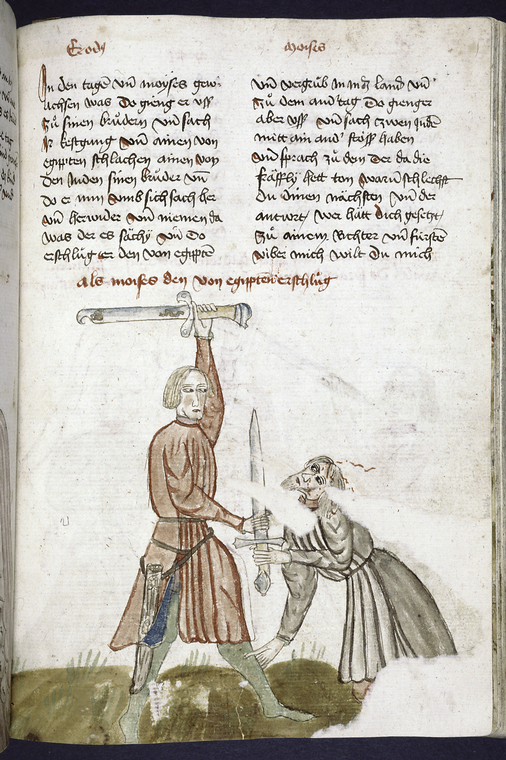 Exody
Moises
In den tagē vn̄ moyses gew
achsen was Do gieng er vsß
Zů sinen brůdern vn̄ sach
Ir kestgung vn̄ ainen von
egipten schlachen ainen von
Den Juden sinen brůder vn̄
do er nun vmb sich sach her
vn̄ herwider vn̄ niemen da
was der es sächy vn̄ Do
erschlůg er den von egipten
vn̄ vergrůb in in dz land vn̄
Zů dem and' tag Do gienger
aber vsß vn̄ sach zwen Juden
mitt ain and' stösß haben
vn̄ sprach zů den Der da die
fräffly hett ton warū schlechst
Du dinen nächsten vn̄ der
antwurt / wer hätt dich gesetzt /
Zů ainem Richter vn̄ fürsten
über mich wilt Du mich
Als moises den von egipten erschlůg